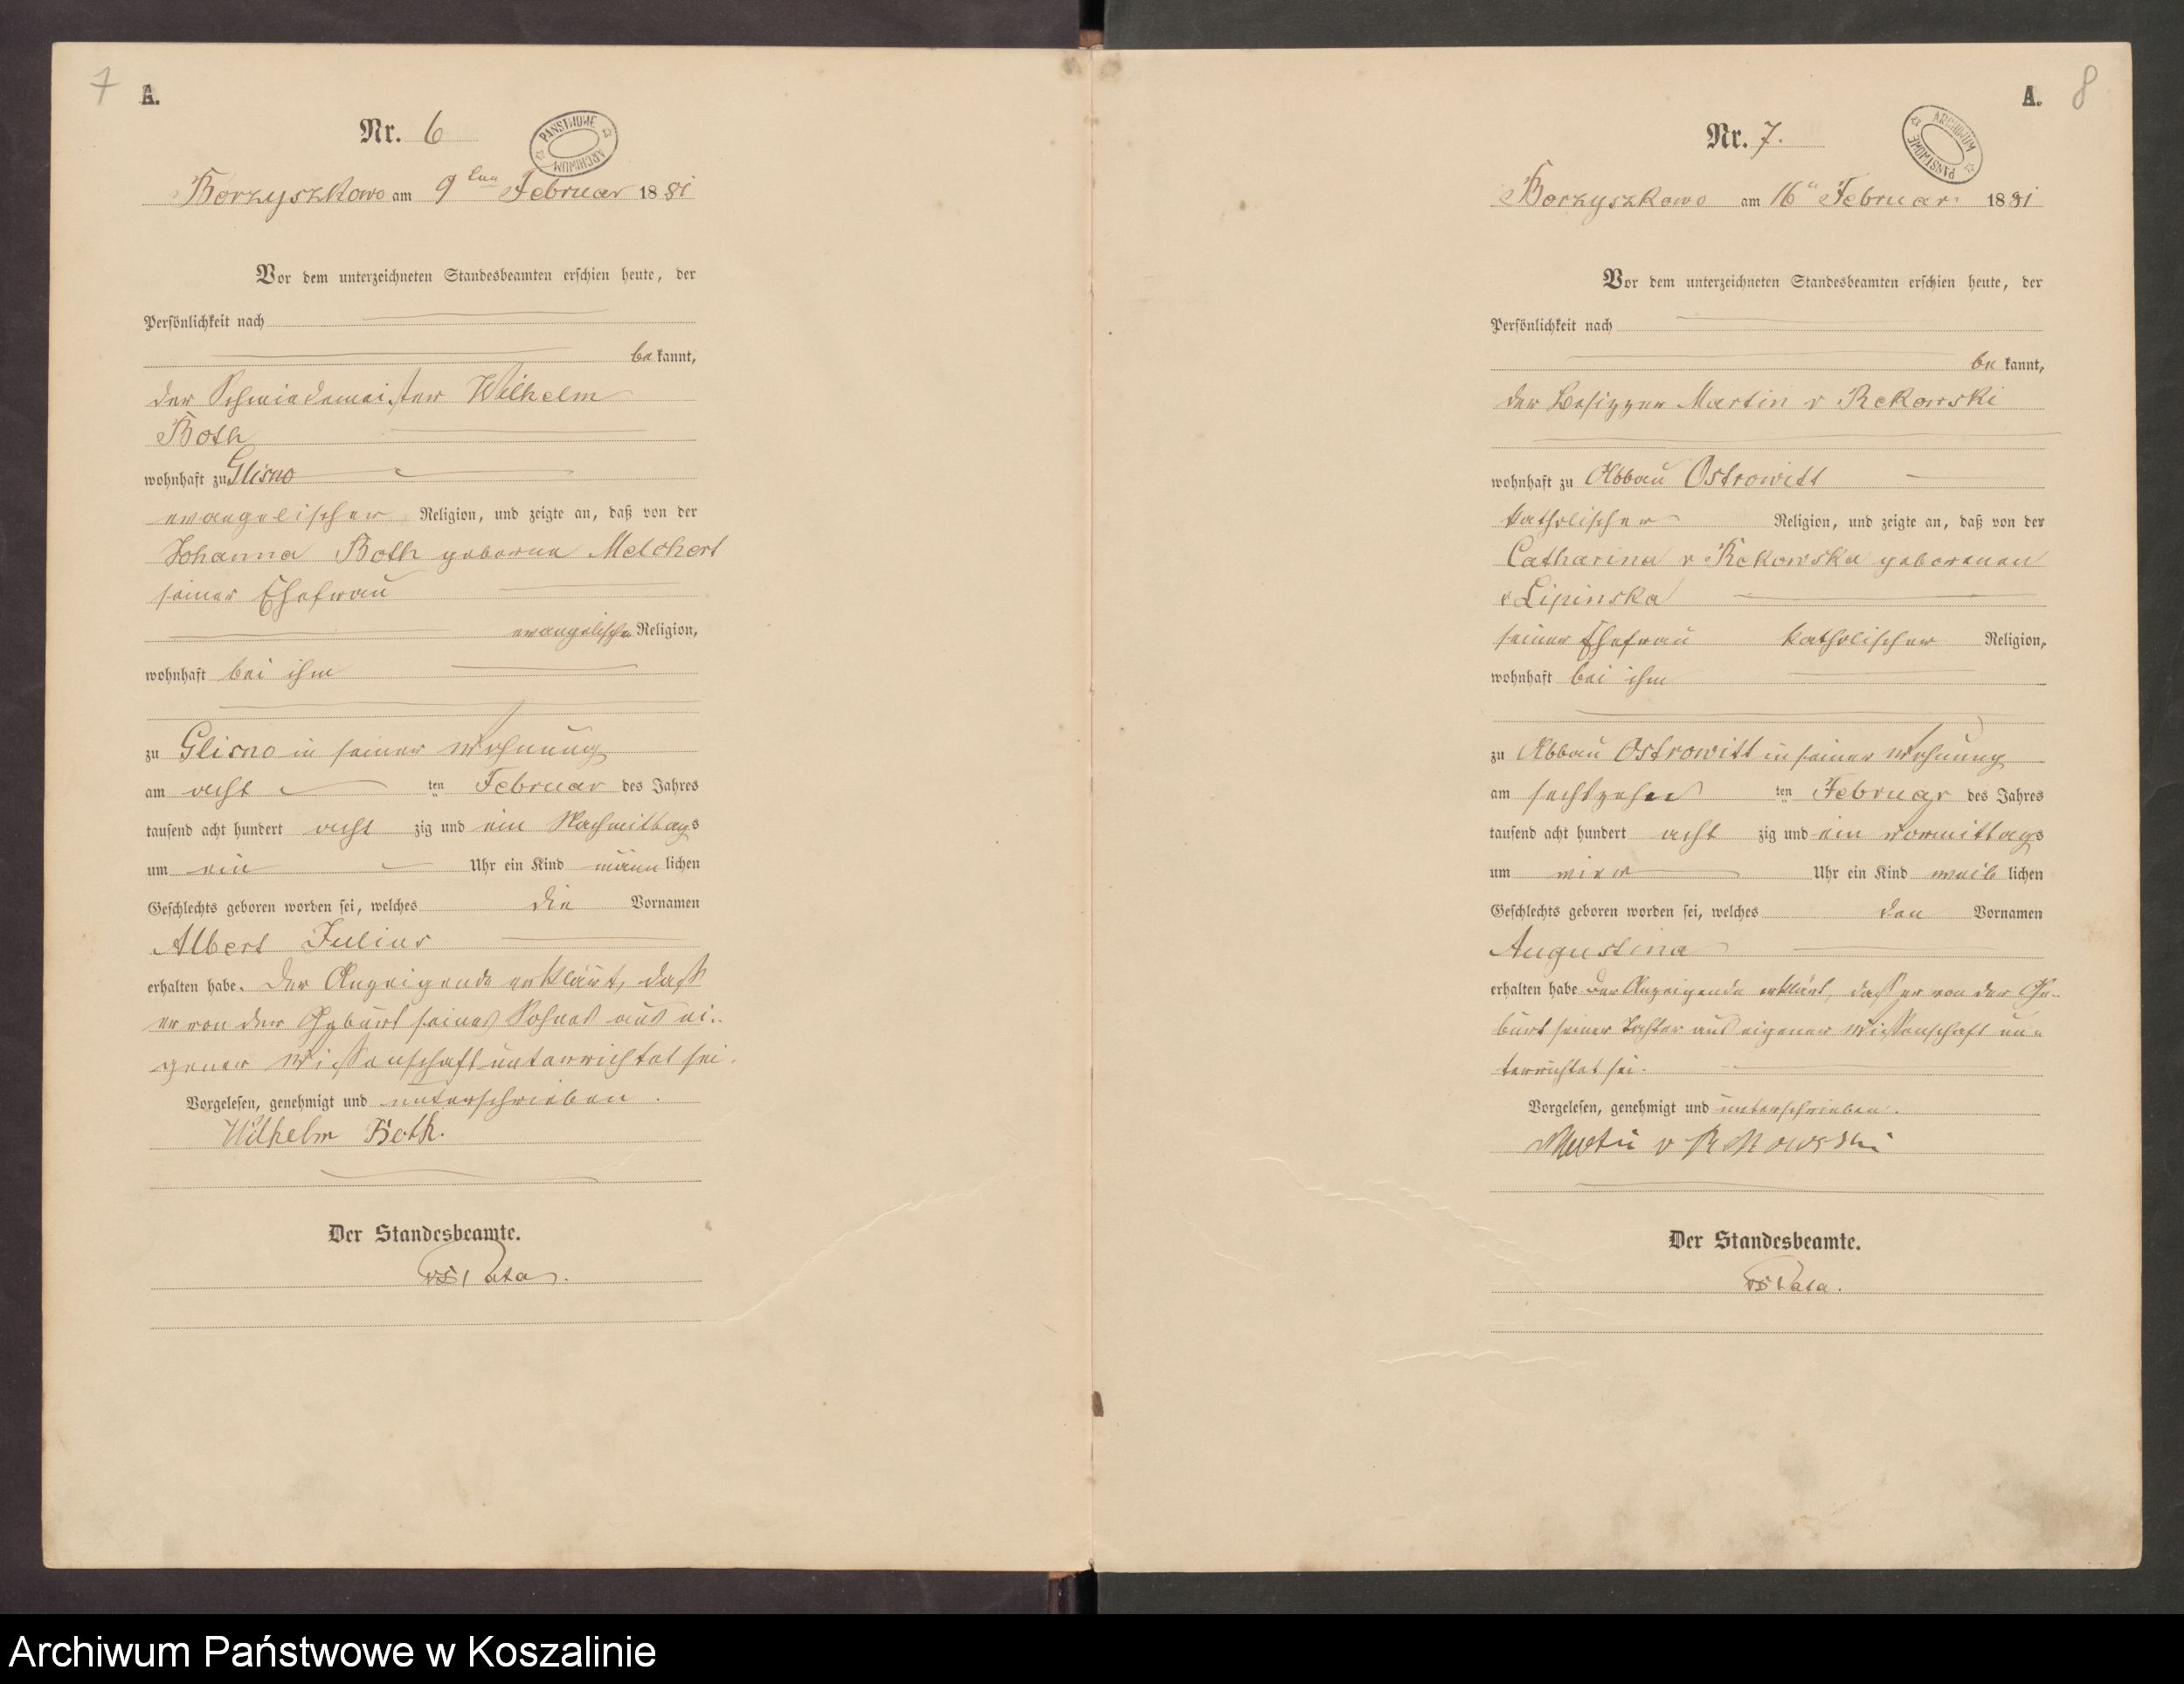 7
A.
Nr. 6
PAŃSTWOWE ARCHIWUM
Borzyszkowo am 9ten Februar 1881
Vor dem unterzeichneten Standesbeamten erschien heute, der
Persönlichkeit nach
bekannt,
der Schmiedemeister Wilhelm
Both
wohnhaft zu Glisno
evangelischer Religion, und zeigte an, daß von der
Johanna Both geborne Melchert
seiner Ehefrau
evangelischer Religion,
wohnhaft bei ihm
zu Glisno in seiner Wohnung
am acht ten Februar des Jahres
tausend acht hundert acht zig und ein Nachmittags
um ein Uhr ein Kind männlichen
Geschlechts geboren worden sei, welches die Vornamen
Albert Julius
erhalten habe. Der Anzeigende erklärt, daß
er von der Geburt seines Sohnes aus ei-
gener Wissenschaft unterrichtet sei.
Vorgelesen, genehmigt und unterschrieben.
Wilhelm Both.
Der Standesbeamte.
A.
8
Nr. 7.
ARCHIWUM PAŃSTWOWE
Borzyszkowo am 16ten Februar 1881
Vor dem unterzeichneten Standesbeamten erschien heute, der
Persönlichkeit nach
bekannt,
der Besitzer Martin v Rekowski
wohnhaft zu Abbau Ostrowitt
katholischer Religion, und zeigte an, daß von der
Catharina v Rekowska geborenen
v Lipinska
seiner Ehefrau katholischer Religion,
wohnhaft bei ihm
zu Abbau Ostrowitt in seiner Wohnung
am sechtzehn ten Februar des Jahres
tausend acht hundert acht zig und ein vormittags
um vier Uhr ein Kind weiblichen
Geschlechts geboren worden sei, welches den Vornamen
Augustina
erhalten habe Der Anzeigende erklärt, daß er von der Ge-
burt seiner Tochter aus eigener Wissenschaft un-
terrichtet sei.
Vorgelesen, genehmigt und unterschrieben.
Martin v Rekowski
Der Standesbeamte.
Archiwum Państwowe w Koszalinie